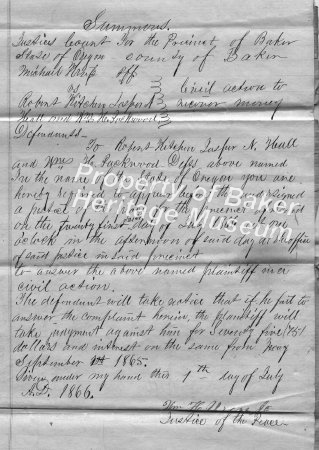 Summons
Justices Court For the Precinct of Baker
State of Oregon County of Baker
Michael Plff
vs Civil action to
Robert Kitchen Jasper N. recover money
Hall and Wm H. Packwood
Defendants
To Robert Kitchen Jasper N. Hall
and Wm H. Packwood Defts above named
In the name of the State of Oregon you are
hereby required to appear before the undersigned
a Justice of the Peace for the precinct aforesaid
on the twenty first day of July 1866 at one
oclock in the afternoon of said day at the office
of said Justice in said precinct
to answer the above named plaintiff in a
civil action.
The defendant will take notice that if he fail to
answer the complaint herein, the plaintiff will
take judgment against him for Seventy five (75)
dollars and interest on the same from
September 1865.
Given under my hand this 7th day of July
A.D. 1866.
Wm H.
Justice of the Peace
Property of Baker
Heritage Museum